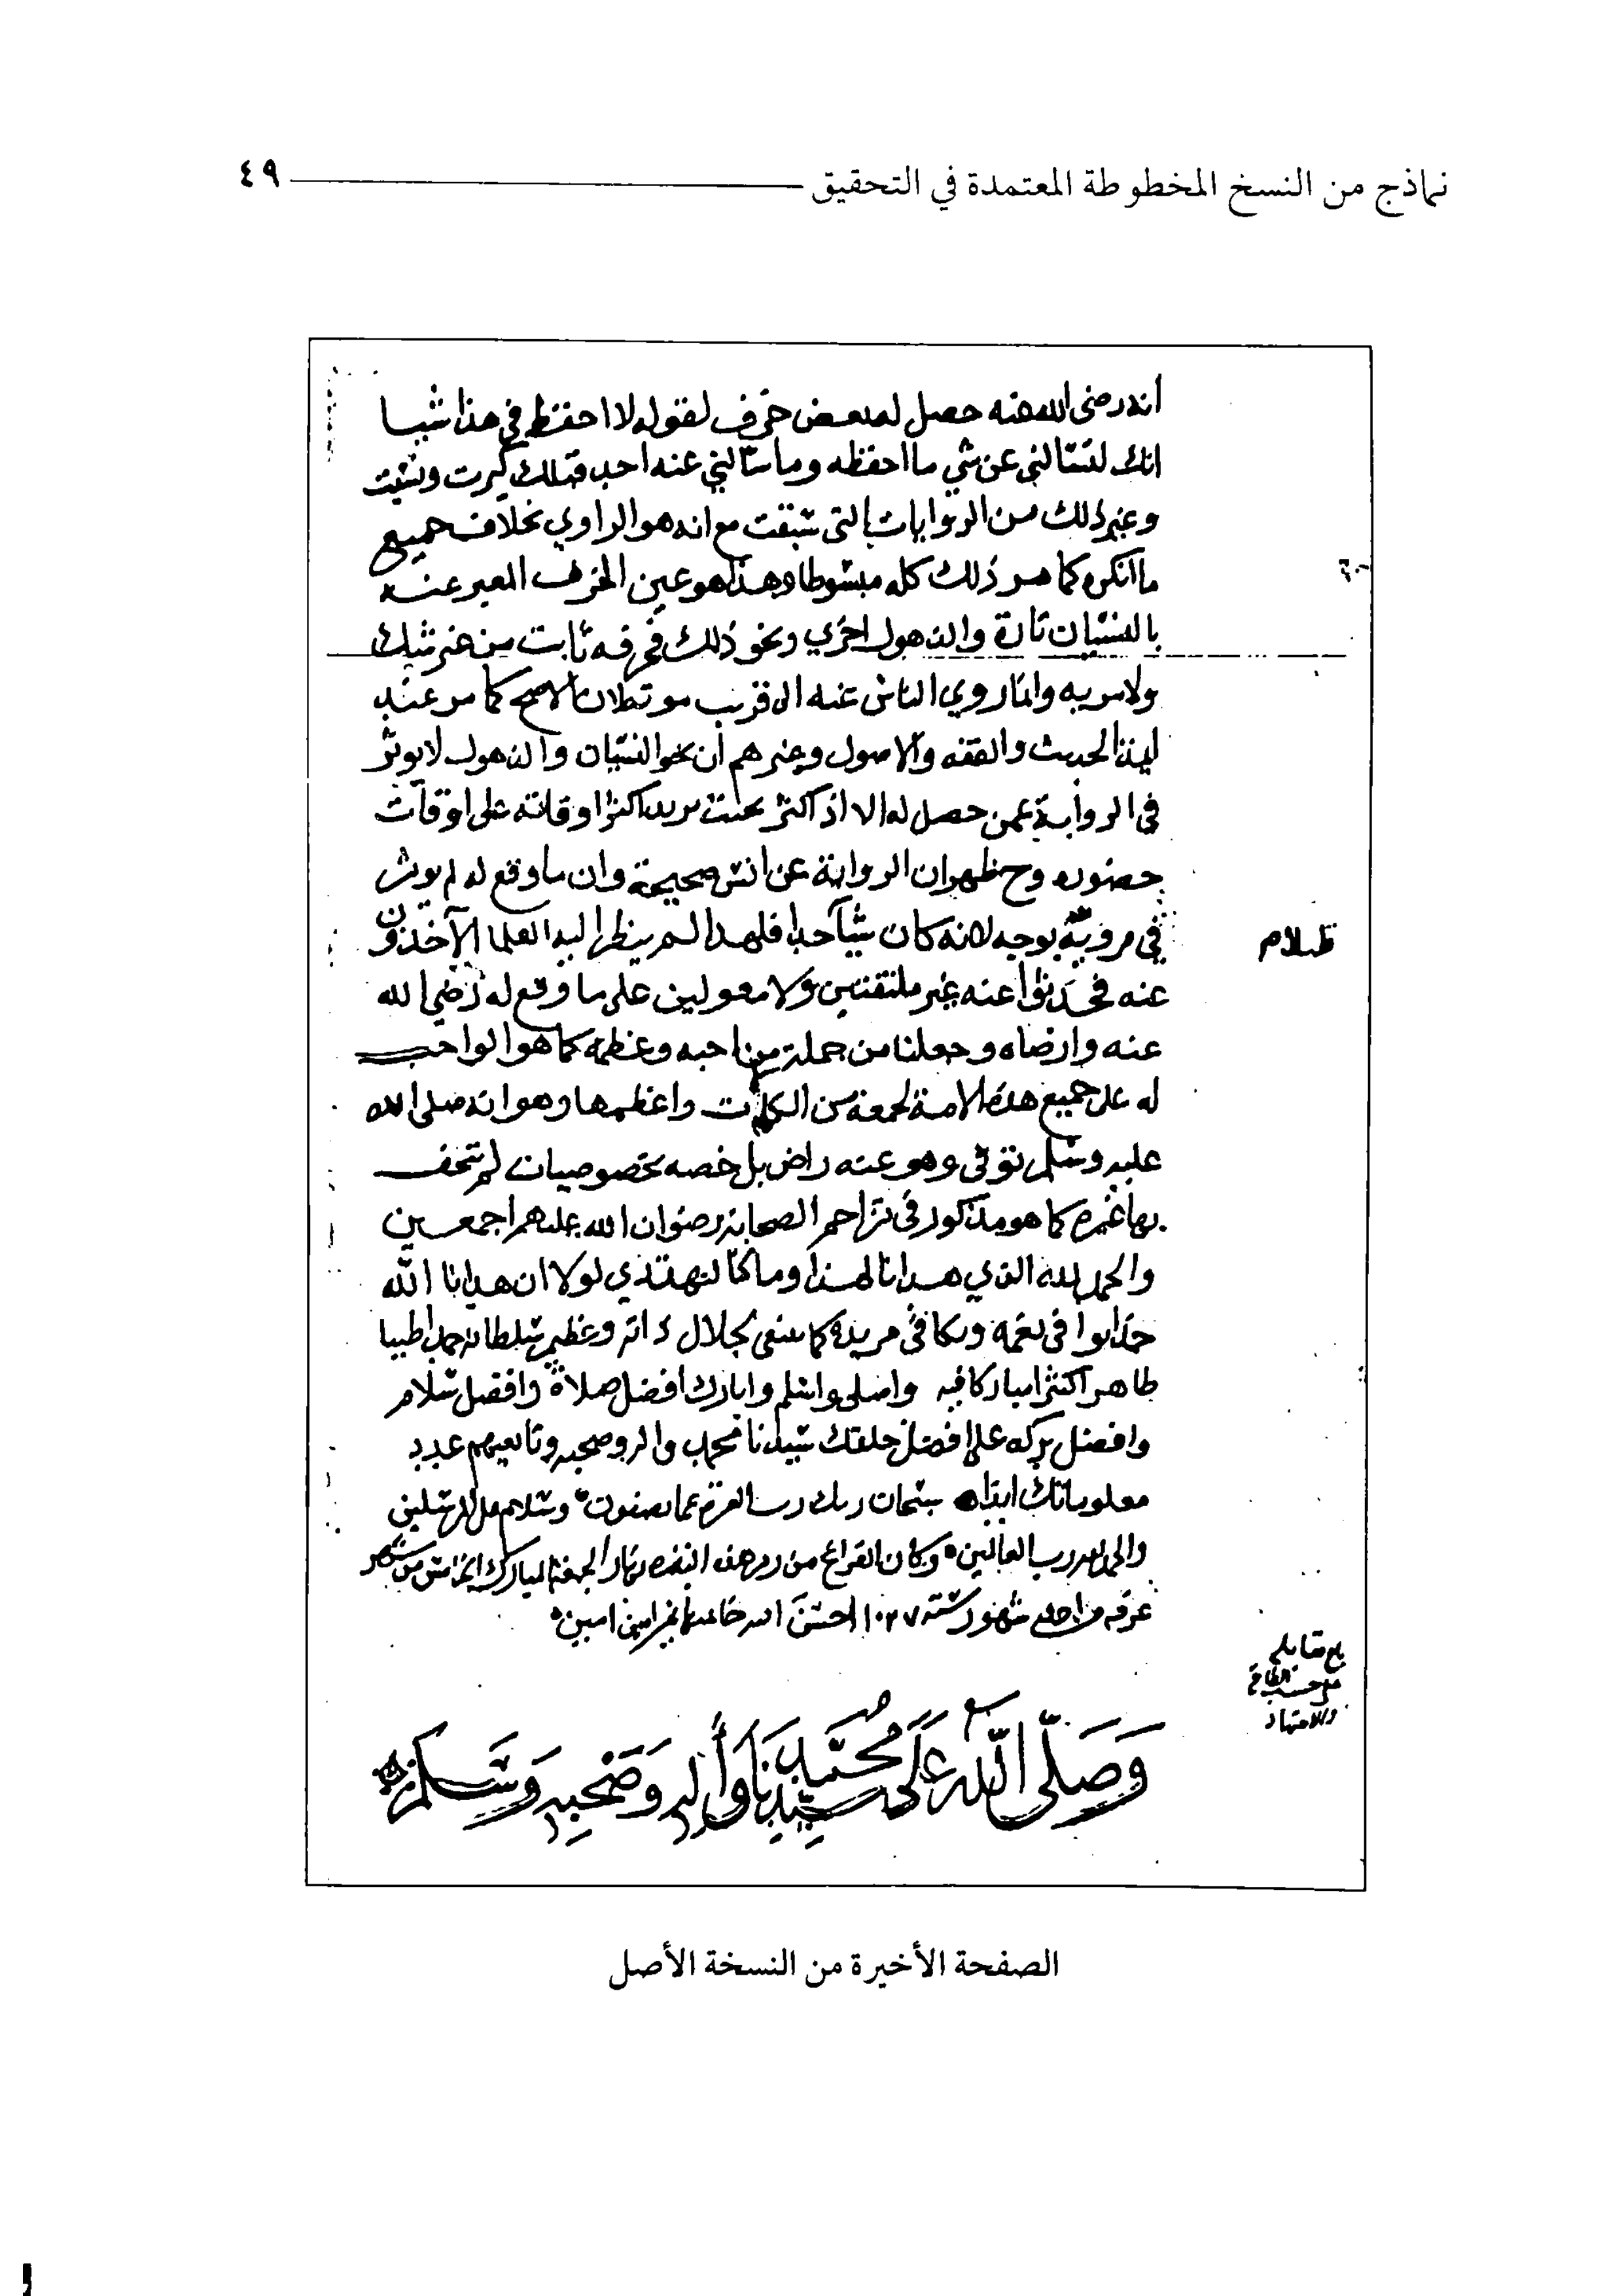 نماذج من النسخ المخطوطة المعتمدة في التحقيق ٤٩
انه رضي الله عنه حصل له بعض خرف لقوله لا احفظ في هذا شيا
انك لتسألني عن شي ما احفظه وما سألني عنه احد قبلك كبرت ونسيت
وغير ذلك من الروايات التي سبقت مع انه هو الراوي بخلاف جميع
ما انكره كما مر ذلك كله مبسوطا وهذا هو عين الخرف المعبر عنه
بالنسيان تارة والذهول اخري ونحو ذلك فخرفه ثابت من غير شك
ولا مريه وانما روي الناس عنه الى قرب موته لان الاصح كما مر عند
ايمة الحديث والفقه والاصول وغيرهم ان نحو النسيان والذهول لا يوثر
في الرواية عمن حصل له الا اذ اكثر بحيث يزيد اكثر اوقاته على اوقات
حضوره وح ظهر ان الرواية عن انس صحيحة وان ما وقع له لم يوثر
في مرويه بوجه لانه كان شيأ جدا فلهذا لم ينظر اليه العلما الآخذون
عنه فحدثوا عنه غير ملتفتين ولا معولين على ما وقع له رضي الله
عنه وارضاه وجعلنا من جملة من احبه وعظمه كما هو الواجب
له على جميع هذه الامة لجمعه من الكمالات واعظمها وهو انه صلى الله
عليه وسلم توفي وهو عنه راض بل خصه بخصوصيات لم يتحف
بها غيره كما هو مذكور في تراجم الصحابة رضوان الله عليهم اجمعين
والحمد لله الذي هدانا لهذا وما كنا لنهتدي لولا ان هدانا الله
حمدا يوافي نعمه ويكافئ مزيده كما ينبغي لجلال ذاته وعظيم سلطانه حمدا طيبا
طاهرا كثيرا مباركا فيه واصلي واسلم وابارك افضل صلاة وافضل سلام
وافضل بركه على افضل خلقك سيدنا محمد واله وصحبه وتابعيهم عدد
معلوماتك ابدا سبحان ربك رب العزة عما يصفون وسلام على المرسلين
والحمد لله رب العالمين وكان الفراغ من رمز هذه النسخه نهار الجمعة المبارك الخامس من شهر
عرفه من احدى شهور سنة ١٠٢٧ احسن الله ختامها بخير امين امين
ظلام
بلغ مقابلة
على حسب الطاقة
والاجتهاد
وَصَلّى اللّه عَلَى سَيِّدِنَا مُحَمَّدٍ وَأَلِهِ وَصَحْبِهِ وَسَلم
الصفحة الأخيرة من النسخة الأصل